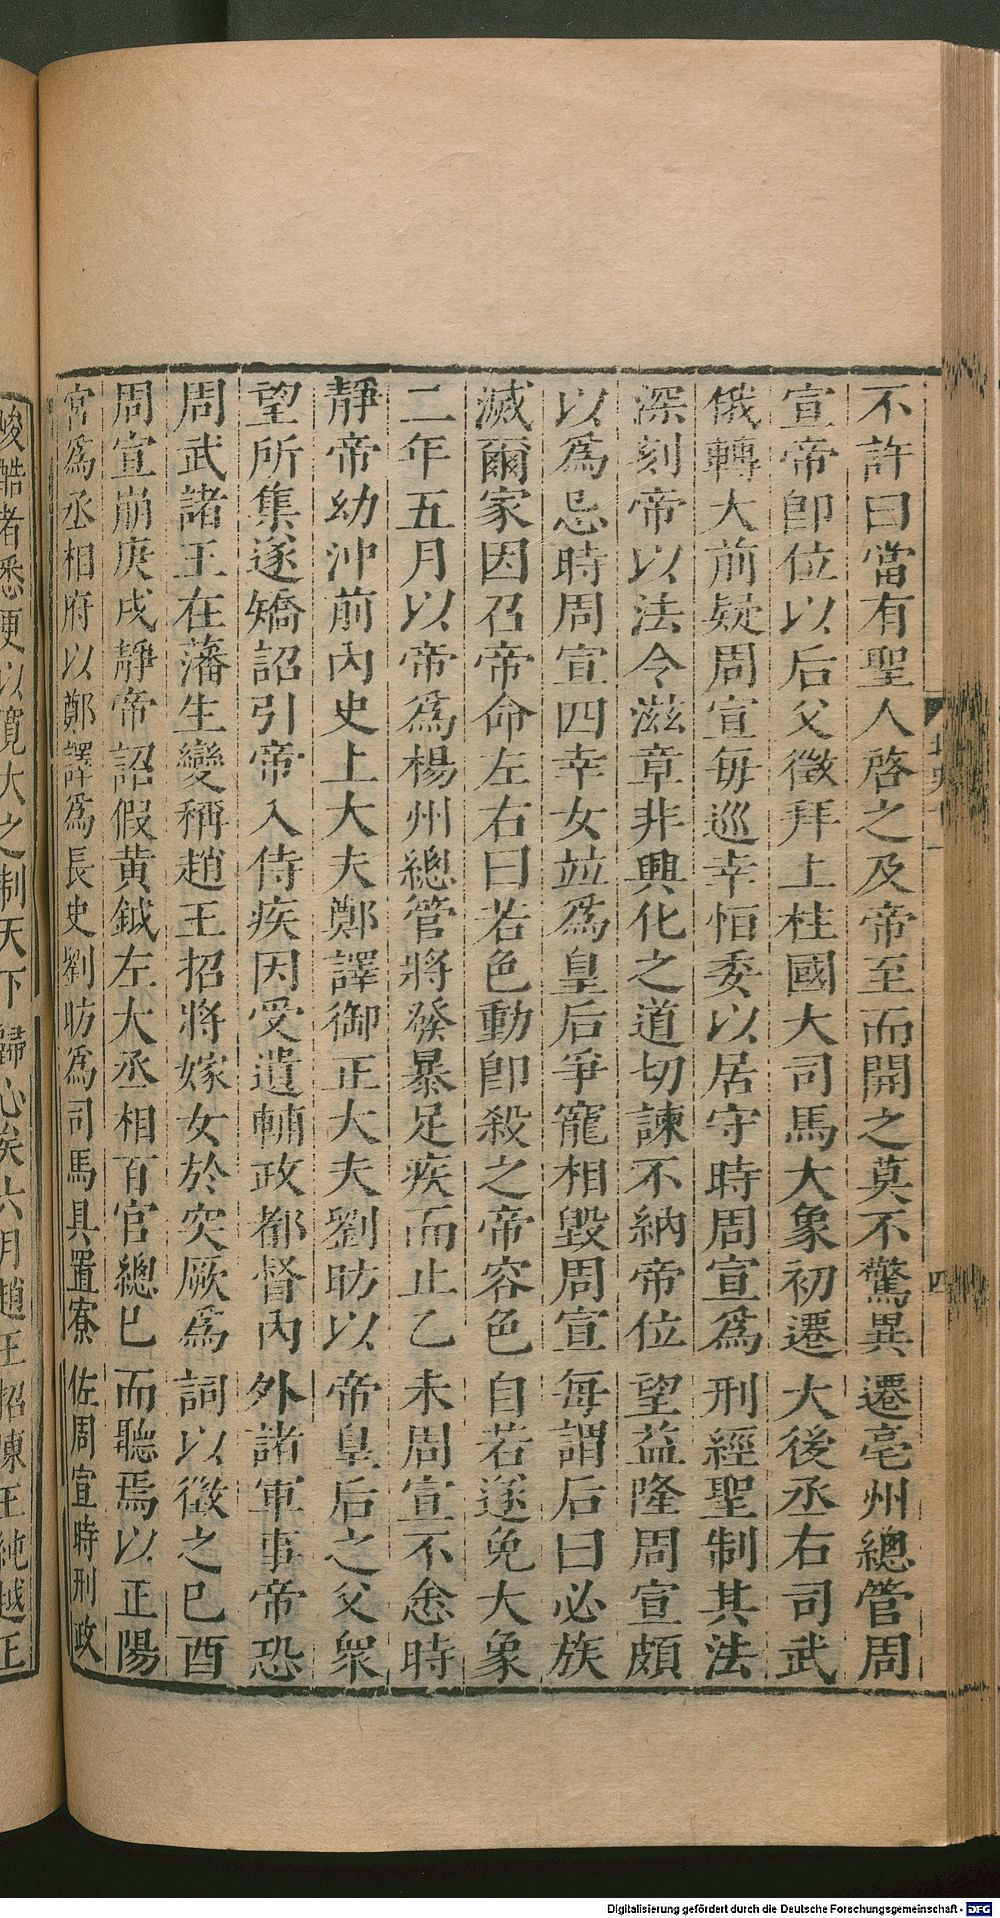 不許曰當有聖人啓之及帝至而開之莫不驚異遷亳州總管周
宣帝卽位以后父徵拜上柱國大司馬大象初遷大後丞右司武
俄轉大前疑周宣每巡幸恒委以居守時周宣爲刑經聖制其法
深刻帝以法令滋章非興化之道切諫不納帝位望益隆周宣頗
以爲忌時周宣四幸女竝爲皇后爭寵相毀周宣每謂后曰必族
滅爾家因召帝命左右曰若色動卽殺之帝容色自若遂免大象
二年五月以帝爲楊州總管將發暴足疾而止乙未周宣不悆時
靜帝幼沖前內史上大夫鄭譯御正大夫劉昉以帝皇后之父衆
望所集遂矯詔引帝入侍疾因受遺輔政都督內外諸軍事帝恐
周武諸王在藩生變稱趙王招將嫁女於突厥爲詞以徵之已酉
周宣崩庚戌靜帝詔假黃鉞左大丞相百官總已而聽焉以正陽
宮爲丞相府以鄭譯爲長史劉昉爲司馬具置寮佐周宣時刑政
峻酷者悉更以寬大之制天下歸心矣六月趙王招陳王純越王
四
Digitalisierung gefördert durch die Deutsche Forschungsgemeinschaft - DFG